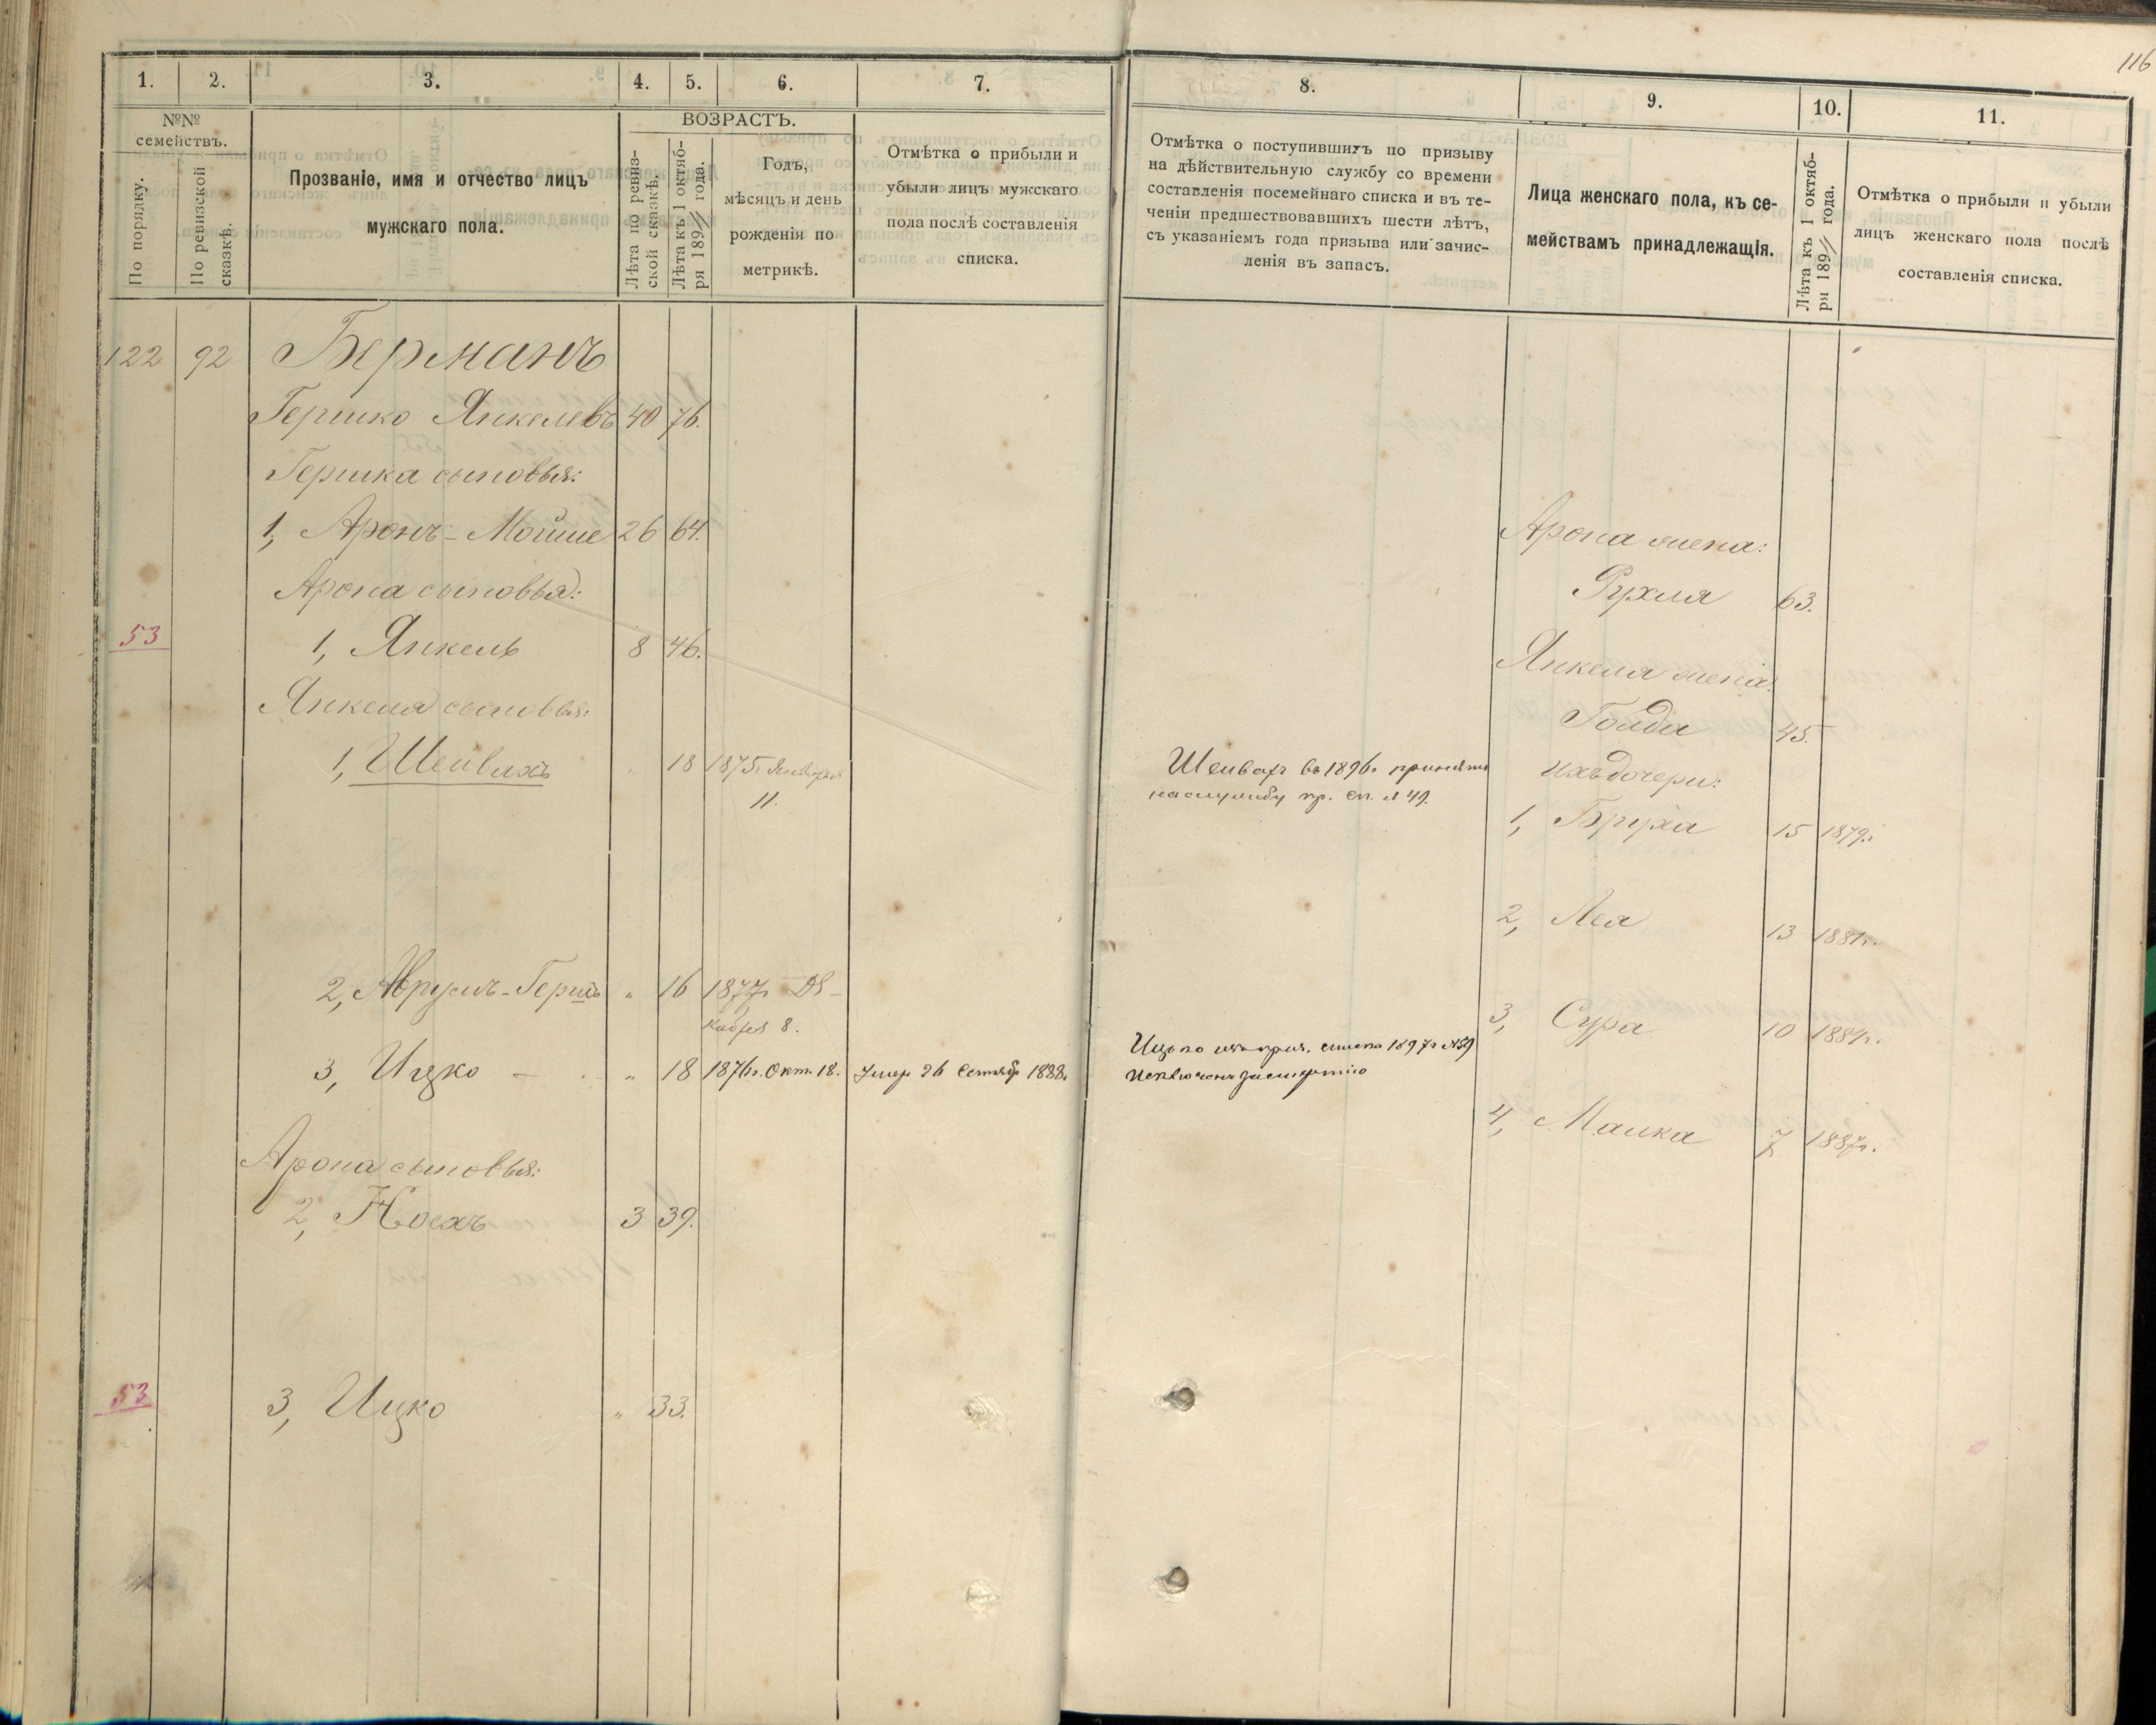 116
1. 2. 3. 4. 5. 6. 7.
№№ семействъ.
По порядку.
По ревизской сказкѣ.
Прозваніе, имя и отчество лицъ
мужскаго пола.
ВОЗРАСТЪ.
Лѣта по ревиз-
ской сказкѣ.
Лѣта къ 1 октяб-
ря 189 года.
Годъ,
мѣсяцъ и день
рожденія по
метрикѣ.
Отмѣтка о прибыли и
убыли лицъ мужскаго
пола послѣ составленія
списка.
122 92 Берманъ
Гершко Янкелевъ 40 76.
Гершка сыновья:
1, Аронъ-Мойше 26 64.
Арона сыновья:
53 1, Янкель 8 46.
Янкеля сыновья:
1, Шейвахъ " 18 1875г. Января
11.
2, Аврумъ-Гершъ " 16 1877г. Де-
кабря 8.
3, Ицко — " 18 1876г. Окт. 18. Умер 26 Сентябр 1888г.
Арона сыновья:
2, Ноехъ 3 39.
53 3, Ицко " 33.
8. 9. 10. 11.
Отмѣтка о поступившихъ по призыву
на дѣйствительную службу со времени
составленія посемейнаго списка и въ те-
ченіи предшествовавшихъ шести лѣтъ,
съ указаніемъ года призыва или зачис-
ленія въ запасъ.
Лица женскаго пола, къ се-
мействамъ принадлежащія.
Лѣта къ 1 октяб-
ря 189 года.
Отмѣтка о прибыли и убыли
лицъ женскаго пола послѣ
составленія списка.
Арона жена:
Рухля 63.
Янкеля жена:
Голда 45.
Шейвахъ въ 1896г. принятъ
на службу пр. сп. № 49.
ихъ дочери:
1, Бруха 15 1879г.
2, Лея 13 1881г.
3, Сура 10 1884г.
Ицько изъ приз. списка 1897г. №59
исключенъ за смертію
4, Малка 7 1887г.